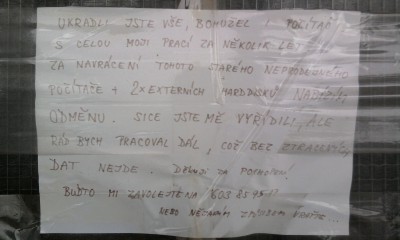 UKRADLI JSTE VŠE, BOHUŽEL I POČÍTAČ
S CELOU MOJÍ PRACÍ ZA NĚKOLIK LET
ZA NAVRÁCENÍ TOHOTO STARÉHO NEPRODEJNÉHO
POČÍTAČE + 2x EXTERNÍCH HARDDISKŮ NABÍZÍM
ODMĚNU. SICE JSTE MĚ VYŘÍDILI, ALE
RÁD BYCH PRACOVAL DÁL, COŽ BEZ ZTRACENÝCH
DAT NEJDE. DĚKUJI ZA POCHOPENÍ!
BUĎTO MI ZAVOLEJTE NA 603 85
NEBO NĚJAKÝM ZPŮSOBEM VRAŤTE...